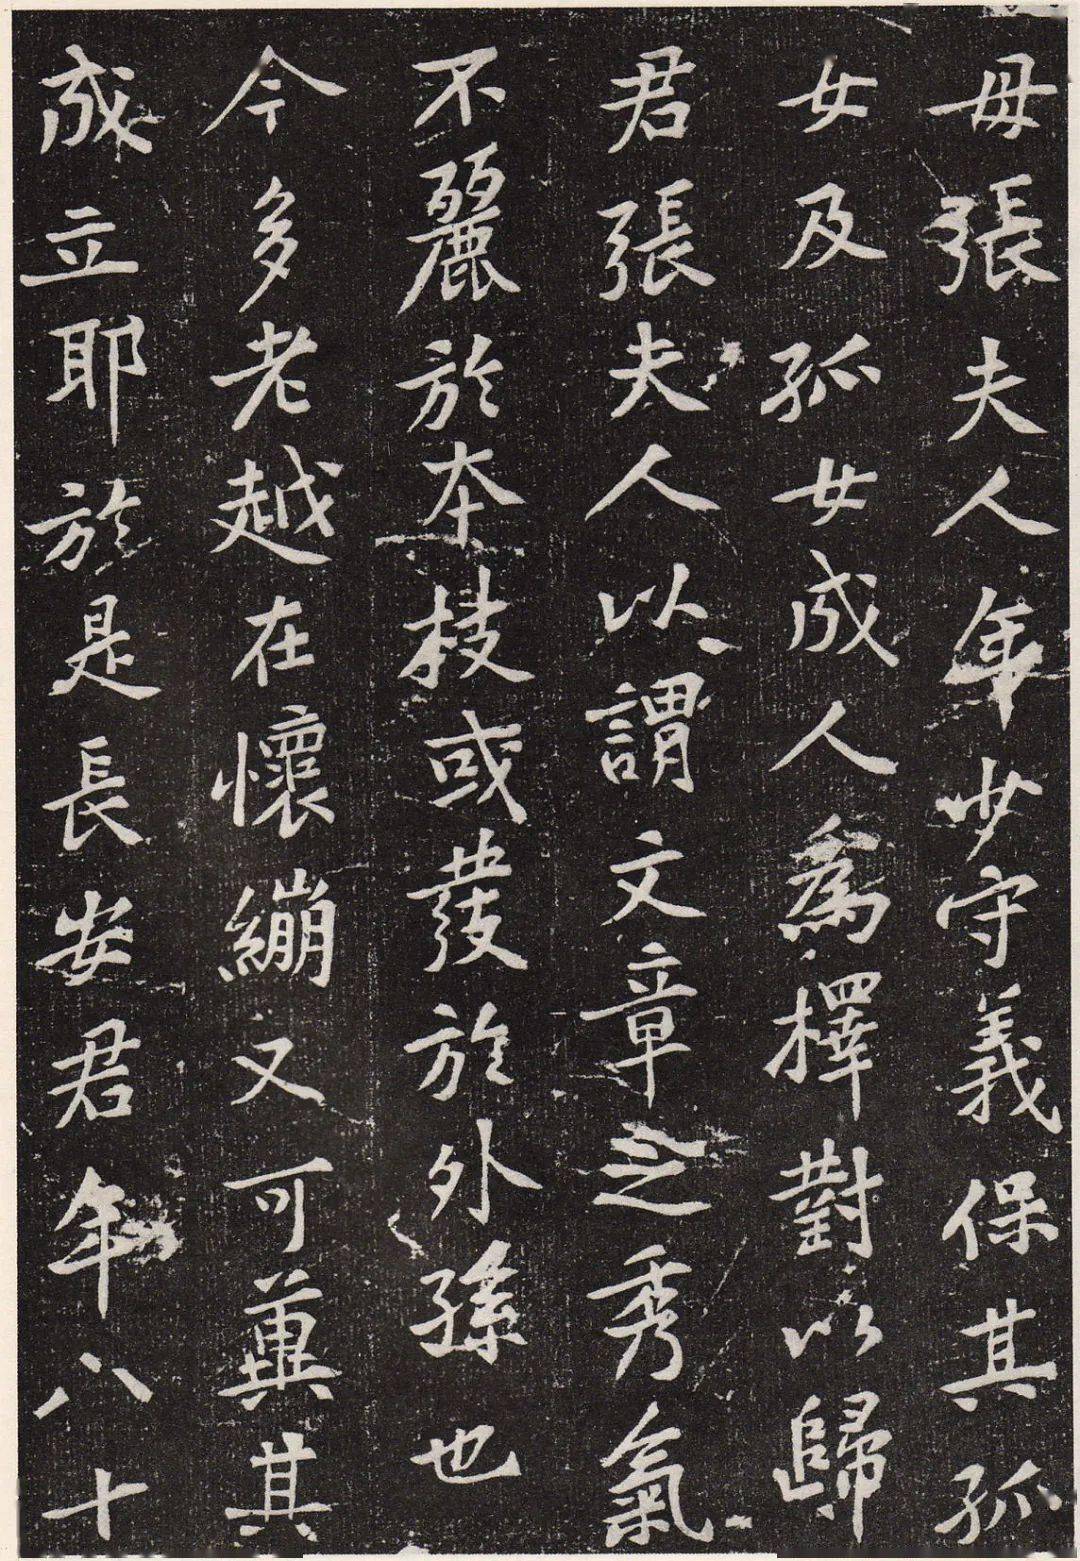 母張夫人年少守義保其孤
女及孤女成人為擇對以歸
君張夫人以謂文章之秀氣
不麗於本枝或發於外孫也
今多老越在懷繃又可冀其
成立耶於是長安君年八十